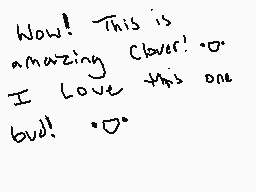 Wow! This is
amazing Clover! •o•
I Love this one
bud! •o•